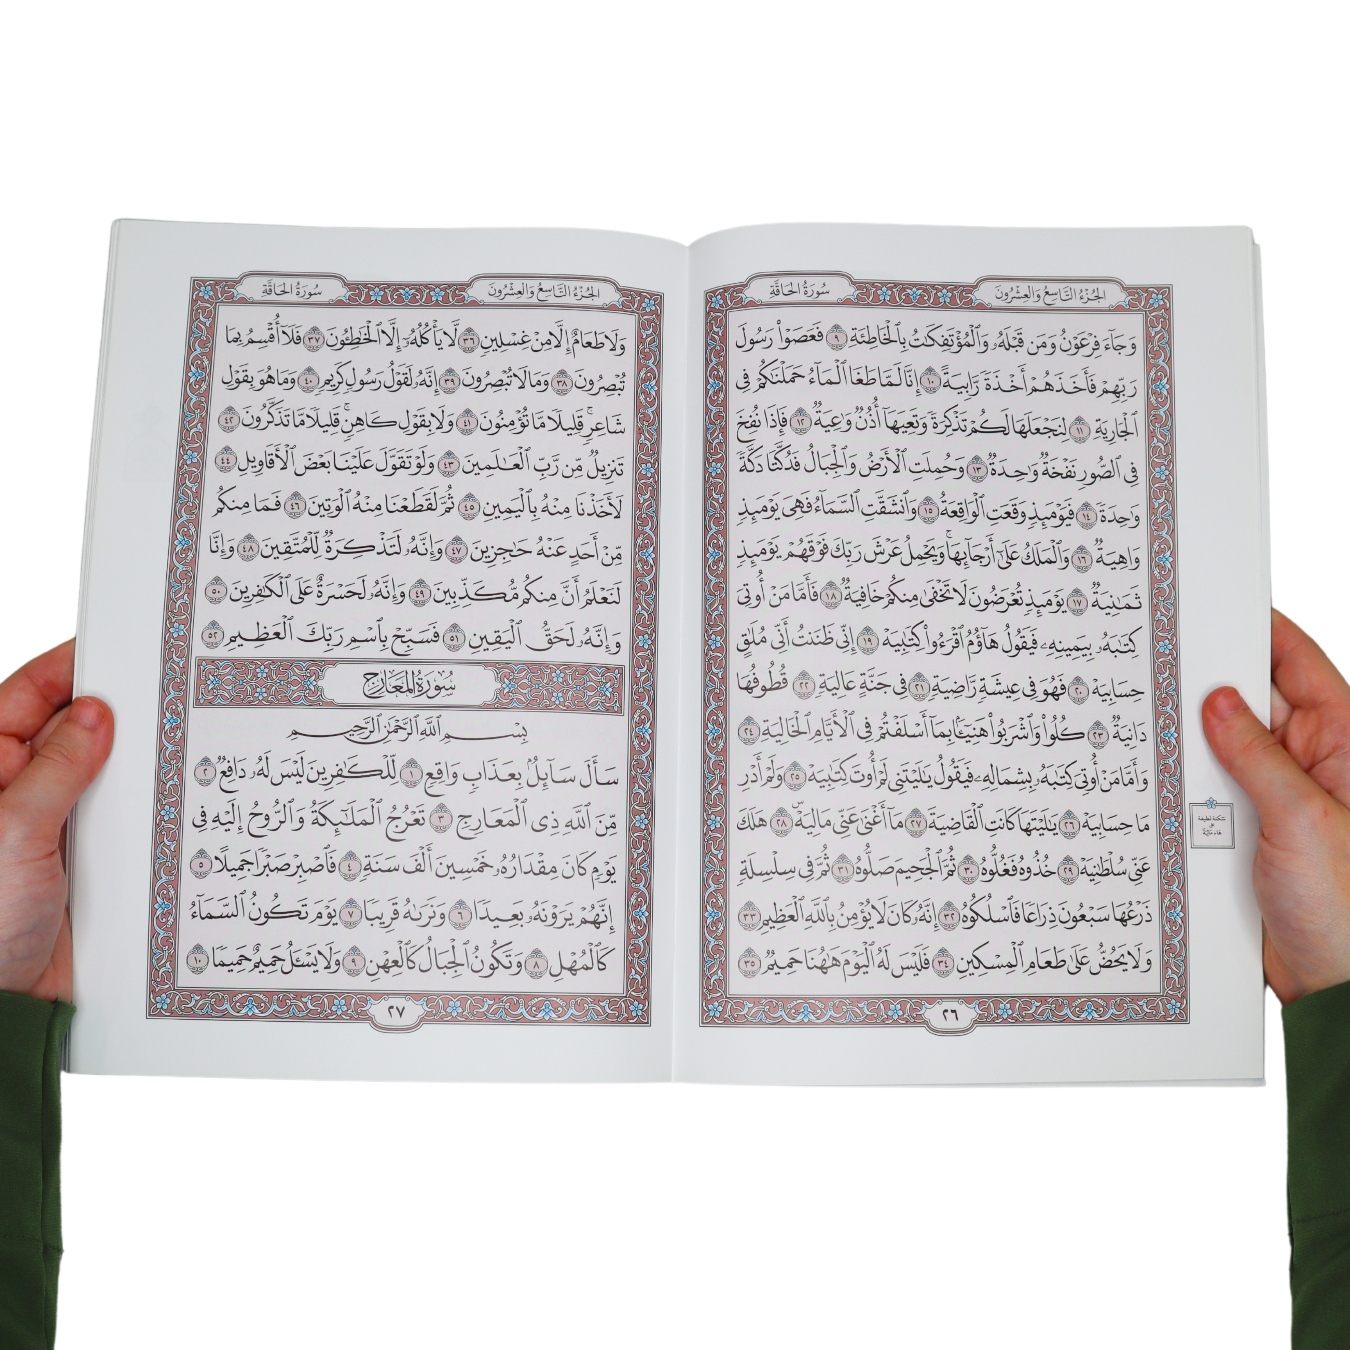 الجزء التاسع والعشرون
سورة الحاقة
وَجَآءَ فِرْعَوْنُ وَمَن قَبْلَهُۥ وَٱلْمُؤْتَفِكَٰتُ بِٱلْخَاطِئَةِ ٩ فَعَصَوْا۟ رَسُولَ
رَبِّهِمْ فَأَخَذَهُمْ أَخْذَةً رَّابِيَةً ١٠ إِنَّا لَمَّا طَغَا ٱلْمَآءُ حَمَلْنَٰكُمْ فِى
ٱلْجَارِيَةِ ١١ لِنَجْعَلَهَا لَكُمْ تَذْكِرَةً وَتَعِيَهَآ أُذُنٌ وَٰعِيَةٌ ١٢ فَإِذَا نُفِخَ
فِى ٱلصُّورِ نَفْخَةٌ وَٰحِدَةٌ ١٣ وَحُمِلَتِ ٱلْأَرْضُ وَٱلْجِبَالُ فَدُكَّتَا دَكَّةً
وَٰحِدَةً ١٤ فَيَوْمَئِذٍ وَقَعَتِ ٱلْوَاقِعَةُ ١٥ وَٱنشَقَّتِ ٱلسَّمَآءُ فَهِىَ يَوْمَئِذٍ
وَاهِيَةٌ ١٦ وَٱلْمَلَكُ عَلَىٰٓ أَرْجَآئِهَا ۚ وَيَحْمِلُ عَرْشَ رَبِّكَ فَوْقَهُمْ يَوْمَئِذٍ
ثَمَٰنِيَةٌ ١٧ يَوْمَئِذٍ تُعْرَضُونَ لَا تَخْفَىٰ مِنكُمْ خَافِيَةٌ ١٨ فَأَمَّا مَنْ أُوتِىَ
كِتَٰبَهُۥ بِيَمِينِهِۦ فَيَقُولُ هَآؤُمُ ٱقْرَءُوا۟ كِتَٰبِيَهْ ١٩ إِنِّى ظَنَنتُ أَنِّى مُلَٰقٍ
حِسَابِيَهْ ٢٠ فَهُوَ فِى عِيشَةٍ رَّاضِيَةٍ ٢١ فِى جَنَّةٍ عَالِيَةٍ ٢٢ قُطُوفُهَا
دَانِيَةٌ ٢٣ كُلُوا۟ وَٱشْرَبُوا۟ هَنِيٓـًٔۢا بِمَآ أَسْلَفْتُمْ فِى ٱلْأَيَّامِ ٱلْخَالِيَةِ ٢٤
وَأَمَّا مَنْ أُوتِىَ كِتَٰبَهُۥ بِشِمَالِهِۦ فَيَقُولُ يَٰلَيْتَنِى لَمْ أُوتَ كِتَٰبِيَهْ ٢٥ وَلَمْ أَدْرِ
مَا حِسَابِيَهْ ٢٦ يَٰلَيْتَهَا كَانَتِ ٱلْقَاضِيَةَ ٢٧ مَآ أَغْنَىٰ عَنِّى مَالِيَهْ ۜ ٢٨ هَلَكَ
عَنِّى سُلْطَٰنِيَهْ ٢٩ خُذُوهُ فَغُلُّوهُ ٣٠ ثُمَّ ٱلْجَحِيمَ صَلُّوهُ ٣١ ثُمَّ فِى سِلْسِلَةٍ
ذَرْعُهَا سَبْعُونَ ذِرَاعًا فَٱسْلُكُوهُ ٣٢ إِنَّهُۥ كَانَ لَا يُؤْمِنُ بِٱللَّهِ ٱلْعَظِيمِ ٣٣
وَلَا يَحُضُّ عَلَىٰ طَعَامِ ٱلْمِسْكِينِ ٣٤ فَلَيْسَ لَهُ ٱلْيَوْمَ هَٰهُنَا حَمِيمٌ ٣٥
سكتة لطيفة
على
هاء مالية
٢٦
الجزء التاسع والعشرون
سورة الحاقة
وَلَا طَعَامٌ إِلَّا مِنْ غِسْلِينٍ ٣٦ لَّا يَأْكُلُهُۥٓ إِلَّا ٱلْخَٰطِـُٔونَ ٣٧ فَلَآ أُقْسِمُ بِمَا
تُبْصِرُونَ ٣٨ وَمَا لَا تُبْصِرُونَ ٣٩ إِنَّهُۥ لَقَوْلُ رَسُولٍ كَرِيمٍ ٤٠ وَمَا هُوَ بِقَوْلِ
شَاعِرٍ ۚ قَلِيلًا مَّا تُؤْمِنُونَ ٤١ وَلَا بِقَوْلِ كَاهِنٍ ۚ قَلِيلًا مَّا تَذَكَّرُونَ ٤٢
تَنزِيلٌ مِّن رَّبِّ ٱلْعَٰلَمِينَ ٤٣ وَلَوْ تَقَوَّلَ عَلَيْنَا بَعْضَ ٱلْأَقَاوِيلِ ٤٤
لَأَخَذْنَا مِنْهُ بِٱلْيَمِينِ ٤٥ ثُمَّ لَقَطَعْنَا مِنْهُ ٱلْوَتِينَ ٤٦ فَمَا مِنكُم
مِّنْ أَحَدٍ عَنْهُ حَٰجِزِينَ ٤٧ وَإِنَّهُۥ لَتَذْكِرَةٌ لِّلْمُتَّقِينَ ٤٨ وَإِنَّا
لَنَعْلَمُ أَنَّ مِنكُم مُّكَذِّبِينَ ٤٩ وَإِنَّهُۥ لَحَسْرَةٌ عَلَى ٱلْكَٰفِرِينَ ٥٠
وَإِنَّهُۥ لَحَقُّ ٱلْيَقِينِ ٥١ فَسَبِّحْ بِٱسْمِ رَبِّكَ ٱلْعَظِيمِ ٥٢
سورة المعارج
بِسْمِ ٱللَّهِ ٱلرَّحْمَٰنِ ٱلرَّحِيمِ
سَأَلَ سَآئِلٌۢ بِعَذَابٍ وَاقِعٍ ١ لِّلْكَٰفِرِينَ لَيْسَ لَهُۥ دَافِعٌ ٢
مِّنَ ٱللَّهِ ذِى ٱلْمَعَارِجِ ٣ تَعْرُجُ ٱلْمَلَٰٓئِكَةُ وَٱلرُّوحُ إِلَيْهِ فِى
يَوْمٍ كَانَ مِقْدَارُهُۥ خَمْسِينَ أَلْفَ سَنَةٍ ٤ فَٱصْبِرْ صَبْرًا جَمِيلًا ٥
إِنَّهُمْ يَرَوْنَهُۥ بَعِيدًا ٦ وَنَرَىٰهُ قَرِيبًا ٧ يَوْمَ تَكُونُ ٱلسَّمَآءُ
كَٱلْمُهْلِ ٨ وَتَكُونُ ٱلْجِبَالُ كَٱلْعِهْنِ ٩ وَلَا يَسْـَٔلُ حَمِيمٌ حَمِيمًا ١٠
٢٧